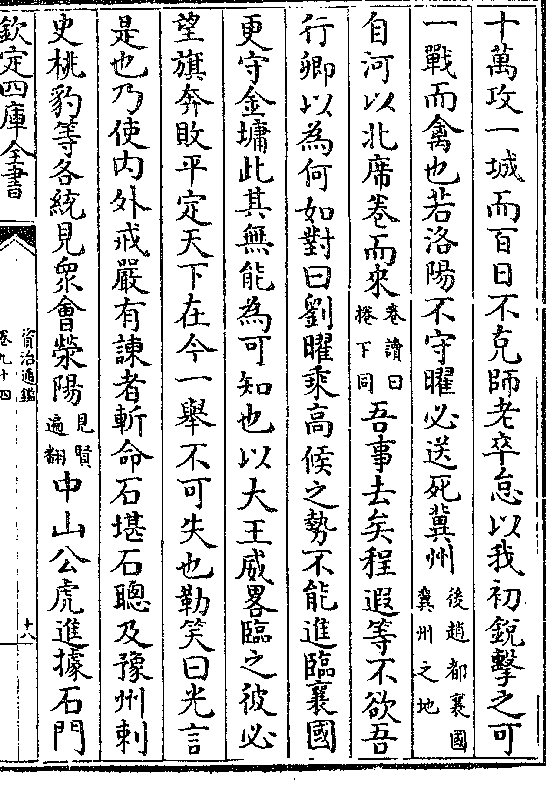 十萬攻一城而百日不克師老卒怠以我初銳擊之可
一戰而禽也若洛陽不守曜必送死冀州後趙都襄國冀州之地
自河以北席卷而來卷讀曰捲下同吾事去矣程遐等不欲吾
行卿以為何如對曰劉曜乘高候之勢不能進臨襄國
更守金墉此其無能為可知也以大王威畧臨之彼必
望旗奔敗平定天下在今一舉不可失也勒笑曰光言
是也乃使内外戒嚴有諫者斬命石堪石聰及豫州刺
史桃豹等各統見衆會滎陽見賢遍翻中山公虎進據石門
欽定四庫全書
資治通鑑
卷九十四
十八